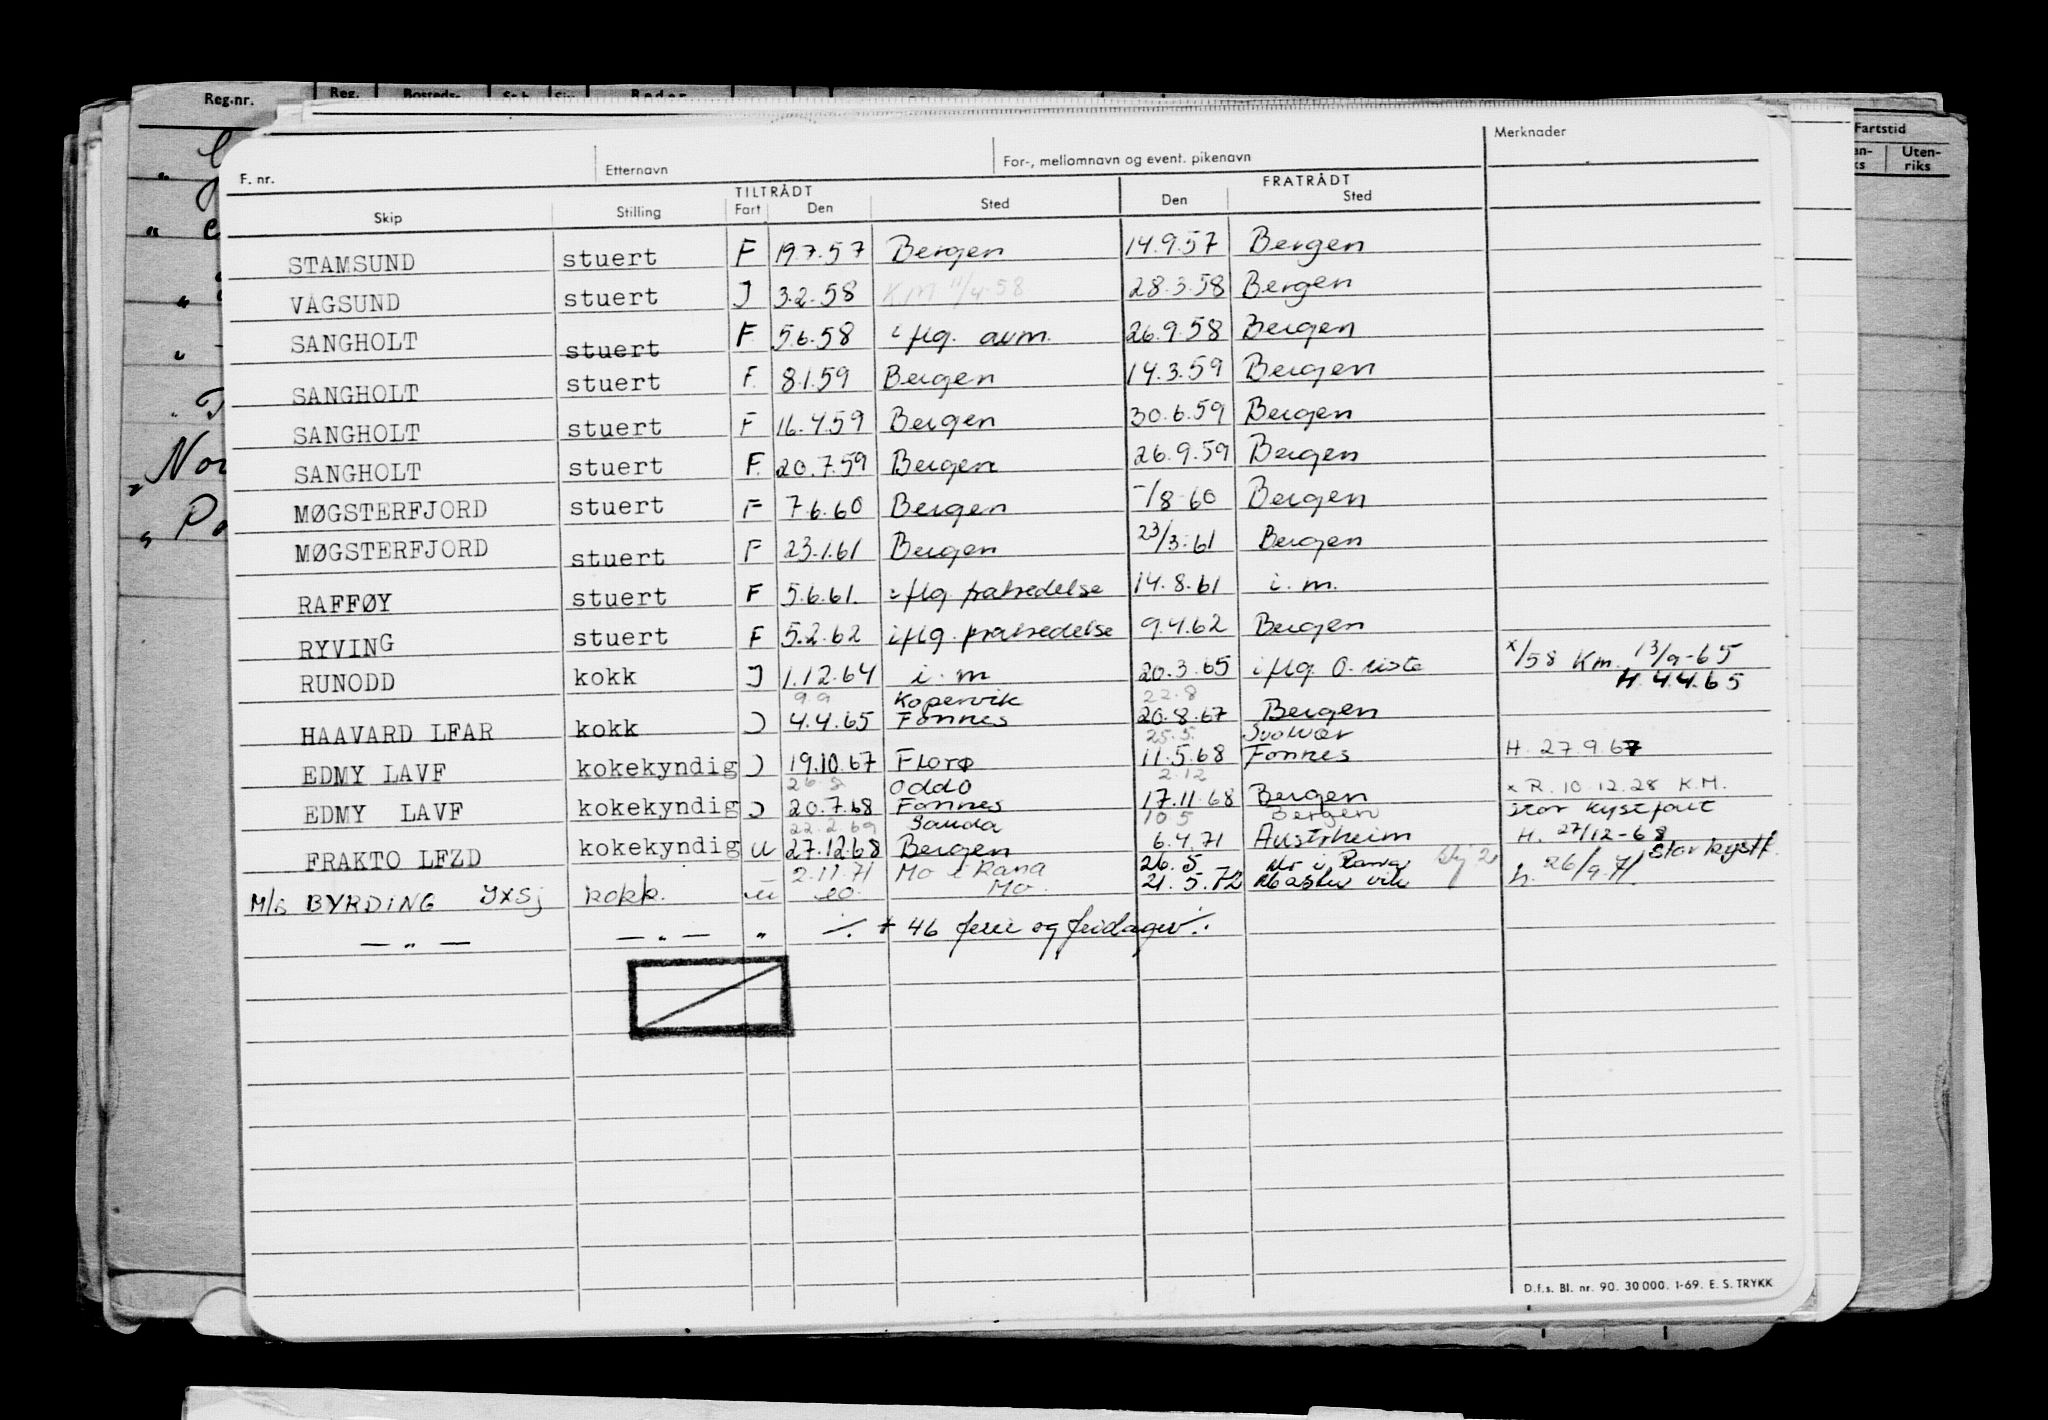 Reg.nr. Reg. Bosteds- Reder
Fartstid
Uten-
riks
Merknader
F. nr. Etternavn For-, mellomnavn og event. pikenavn
TILTRÅDT FRATRÅDT
Skip Stilling Fart Den Sted Den Sted
STAMSUND stuert F 19.7.57 Bergen 14.9.57 Bergen
VÅGSUND stuert J 3.2.58 K.M 11/4-58 28.3.58 Bergen
SANGHOLT stuert F 5.6.58 iflg. avm. 26.9.58 Bergen
SANGHOLT stuert F. 8.1.59 Bergen 14.3.59 Bergen
SANGHOLT stuert F 16.4.59 Bergen 30.6.59 Bergen
SANGHOLT stuert F. 20.7.59 Bergen 26.9.59 Bergen
MØGSTERFJORD stuert F 7.6.60 Bergen -/8-60 Bergen
MØGSTERFJORD stuert F 23.1.61 Bergen 23/3-61 Bergen
RAFFØY stuert F 5.6.61. iflg. fratredelse 14.8.61 i.m.
RYVING stuert F 5.2.62 iflg. fratredelse 9.4.62 Bergen
RUNODD kokk J 1.12.64 i.m 20.3.65 iflg. O.liste x/58 Km. 13/9-65
H. 4.4.65
9.9 Kopervik 22.8
HAAVARD LFAR kokk J 4.4.65 Fonnes 20.8.67 Bergen
25.5. Svolvær
EDMY LAVF kokekyndig J 19.10.67 Florø 11.5.68 Fonnes H. 27.9.67
Odda 2.12
EDMY LAVF kokekyndig J 20.7.68 Fonnes 17.11.68 Bergen x R. 10.12.28 K.M.
stor kystfart
22.2.69 Sauda 10.5 Bergen
FRAKTO LFZD kokekyndig U 27.12.68 Bergen 6.4.71 Austrheim H. 27/12-68
stor kystf.
2.11.71 Mo i Rana 26.5 Mo i Rana
M/S BYRDING JXSJ kokk. U Mo. 21.5.72 h. 26/9.71.
— " — — " — " ./. + 46 ferie og fridager ./.
D.f.s. Bl. nr. 90. 30000. 1-69. E. S. TRYKK